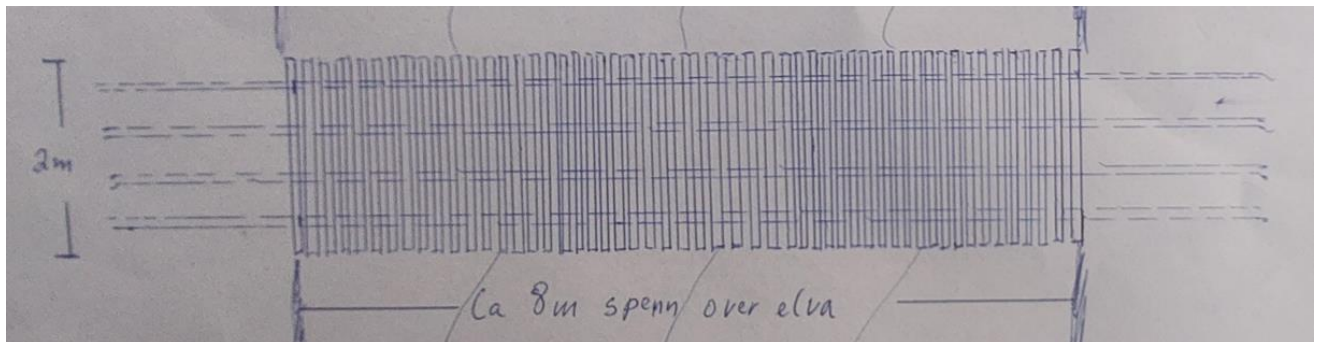 2m
Ca 8m spenn over elva